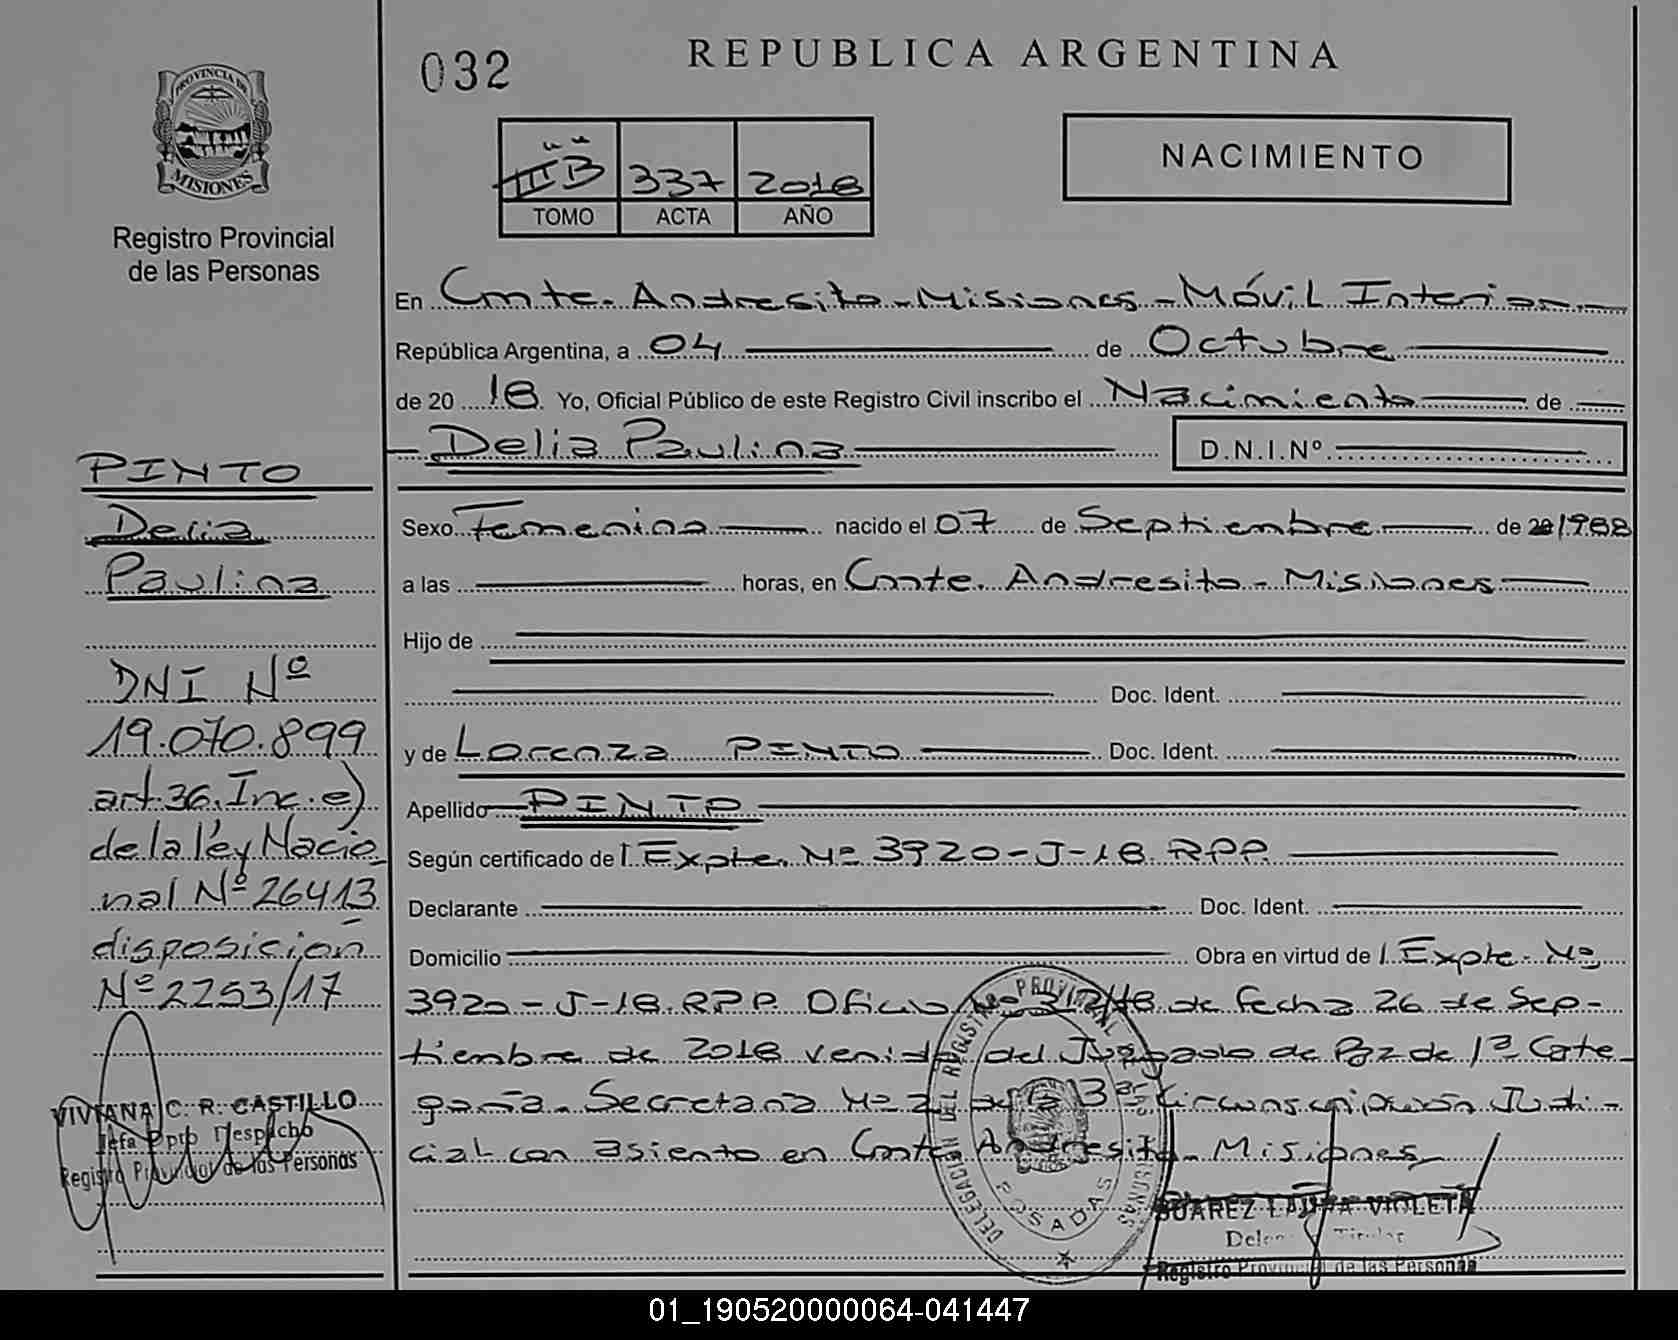 032
REPUBLICA ARGENTINA
PROVINCIA DE
MISIONES
Registro Provincial
de las Personas
III "B" 337 2018
TOMO ACTA AÑO
NACIMIENTO
En Cmte. Andresito - Misiones - Móvil Interior
República Argentina, a 04 de Octubre
de 20 18 Yo, Oficial Público de este Registro Civil inscribo el Nacimiento de
Delia Paulina D.N.I.Nº
Sexo Femenino nacido el 07 de Septiembre de 20 1988
a las horas, en Cmte. Andresito - Misiones
Hijo de
Doc. Ident.
y de Lorenza PINTO Doc. Ident.
Apellido PINTO
Según certificado de l Expte. Nº 3920-J-18. RPP.
Declarante Doc. Ident.
Domicilio Obra en virtud de l Expte. Nº
3920-J-18. RPP. Oficio Nº de fecha 26 de Sep-
tiembre de 2018 venido del Juzgado de Paz de 1ª Cate-
goría. Secretaría Nº 2 de la 3ª Circunscripción Judi-
cial con asiento en Cmte. Andresito - Misiones
PINTO
Delia
Paulina
DNI Nº
19.070.899
art. 36. Inc. e)
de la ley Nacio-
nal Nº 26413
disposición
Nº 2253/17
VIVIANA C. R. CASTILLO
Jefa Dpto Despacho
Registro Provincial de las Personas
DELEGACION DEL REGISTRO PROVINCIAL DE LAS PERSONAS
POSADAS
SUAREZ LAURA VIOLETA
Titular
Registro Provincial de las Personas
01_190520000064-041447